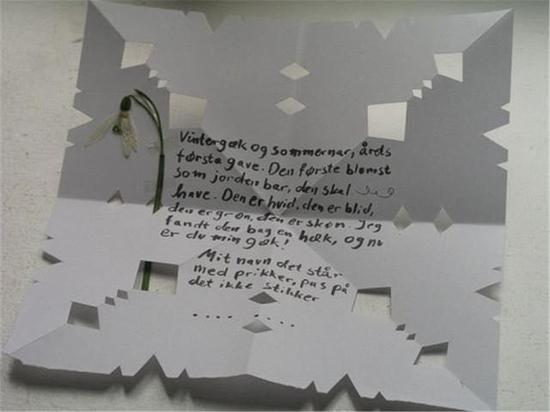 Vintergæk og sommernar, årets
første gave. Den første blomst
som jorden bar, den skal jeg
have. Den er hvid, den er blid,
den er grøn, den er skøn. Jeg
fandt den bag en hæk, og nu
er du min gæk!
Mit navn det står
med prikker, pas på
det ikke stikker
.... ....